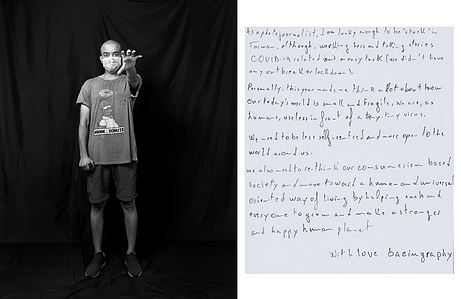 HMMM... DONUTS
As a photojournalist, I am lucky enough to be 'stuck' in
Taiwan, although, working here and telling stories
COVID-19 related isn't an easy task (we didn't have
any outbreak or lockdown).
Personally, this year made me think a lot about how
our today's world is small and fragile, we are, as
humans, useless in front of a tiny virus.
We need to be less self-centred and more open to the
world around us.
we also need to re-think our consumerism based
society and move toward a human and universal
oriented way of living by helping each and
everyone to grow and make a stronger
and happy human planet
With love bazimgraphy